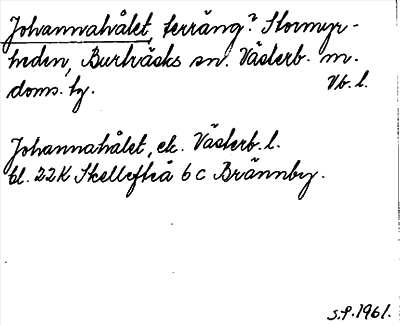 Johannahålet, terräng? Stormyr-
heden, Burträsks sn. Västerb. m.
doms. tg. Vb. l.
Johannahålet, ek. Västerb. l.
bl. 22K Skellefteå 6 c Brännby.
S.P. 1961.